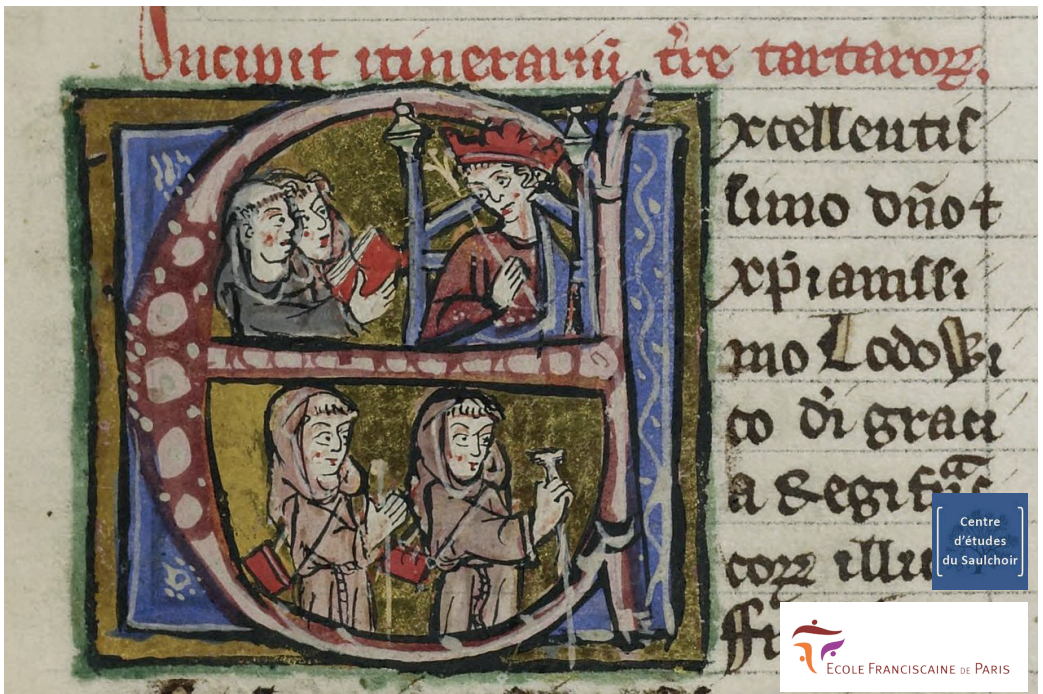 Incipit itinerariū t̄re tartaroꝝ.
Excellentis
simo dño ⁊
xp̄ianissi
mo Lodowi
co dī graci
a Regi
coꝝ illu
Centre
d'études
du Saulchoir
ECOLE FRANCISCAINE DE PARIS